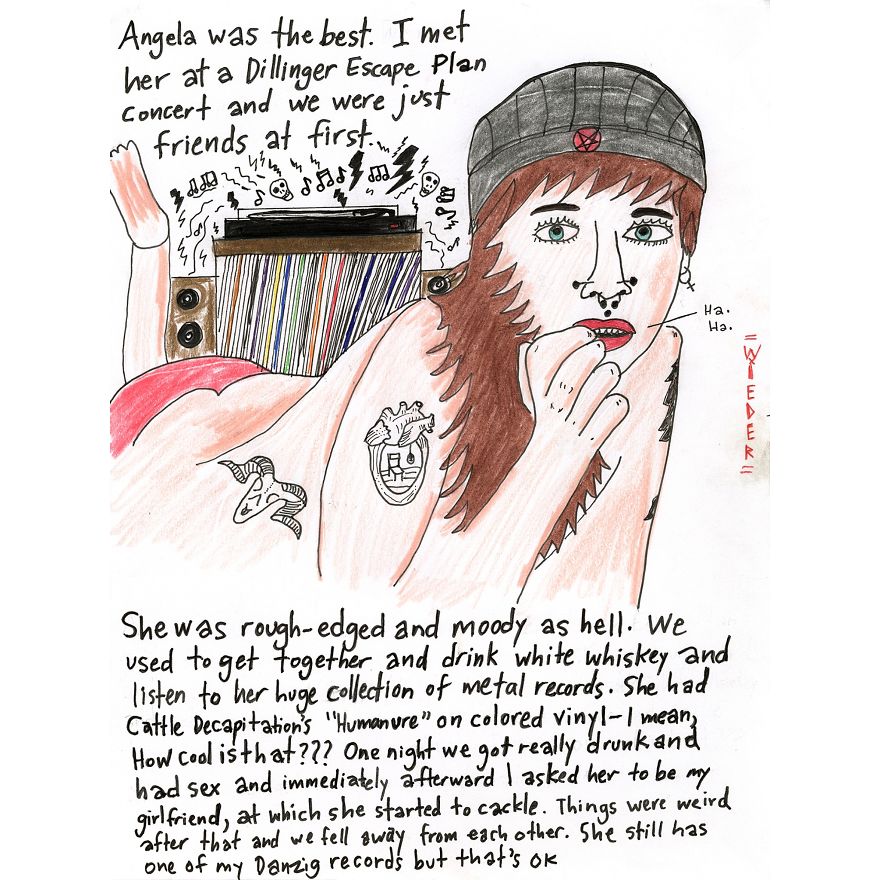 Angela was the best. I met
her at a Dillinger Escape Plan
concert and we were just
friends at first.
Ha.
Ha.
=WIEDER=
She was rough-edged and moody as hell. We
used to get together and drink white whiskey and
listen to her huge collection of metal records. She had
Cattle Decapitation's "Humanure" on colored vinyl-I mean,
How cool is that??? One night we got really drunk and
had sex and immediately afterward I asked her to be my
girlfriend, at which she started to cackle. Things were weird
after that and we fell away from each other. She still has
one of my Danzig records but that's ok